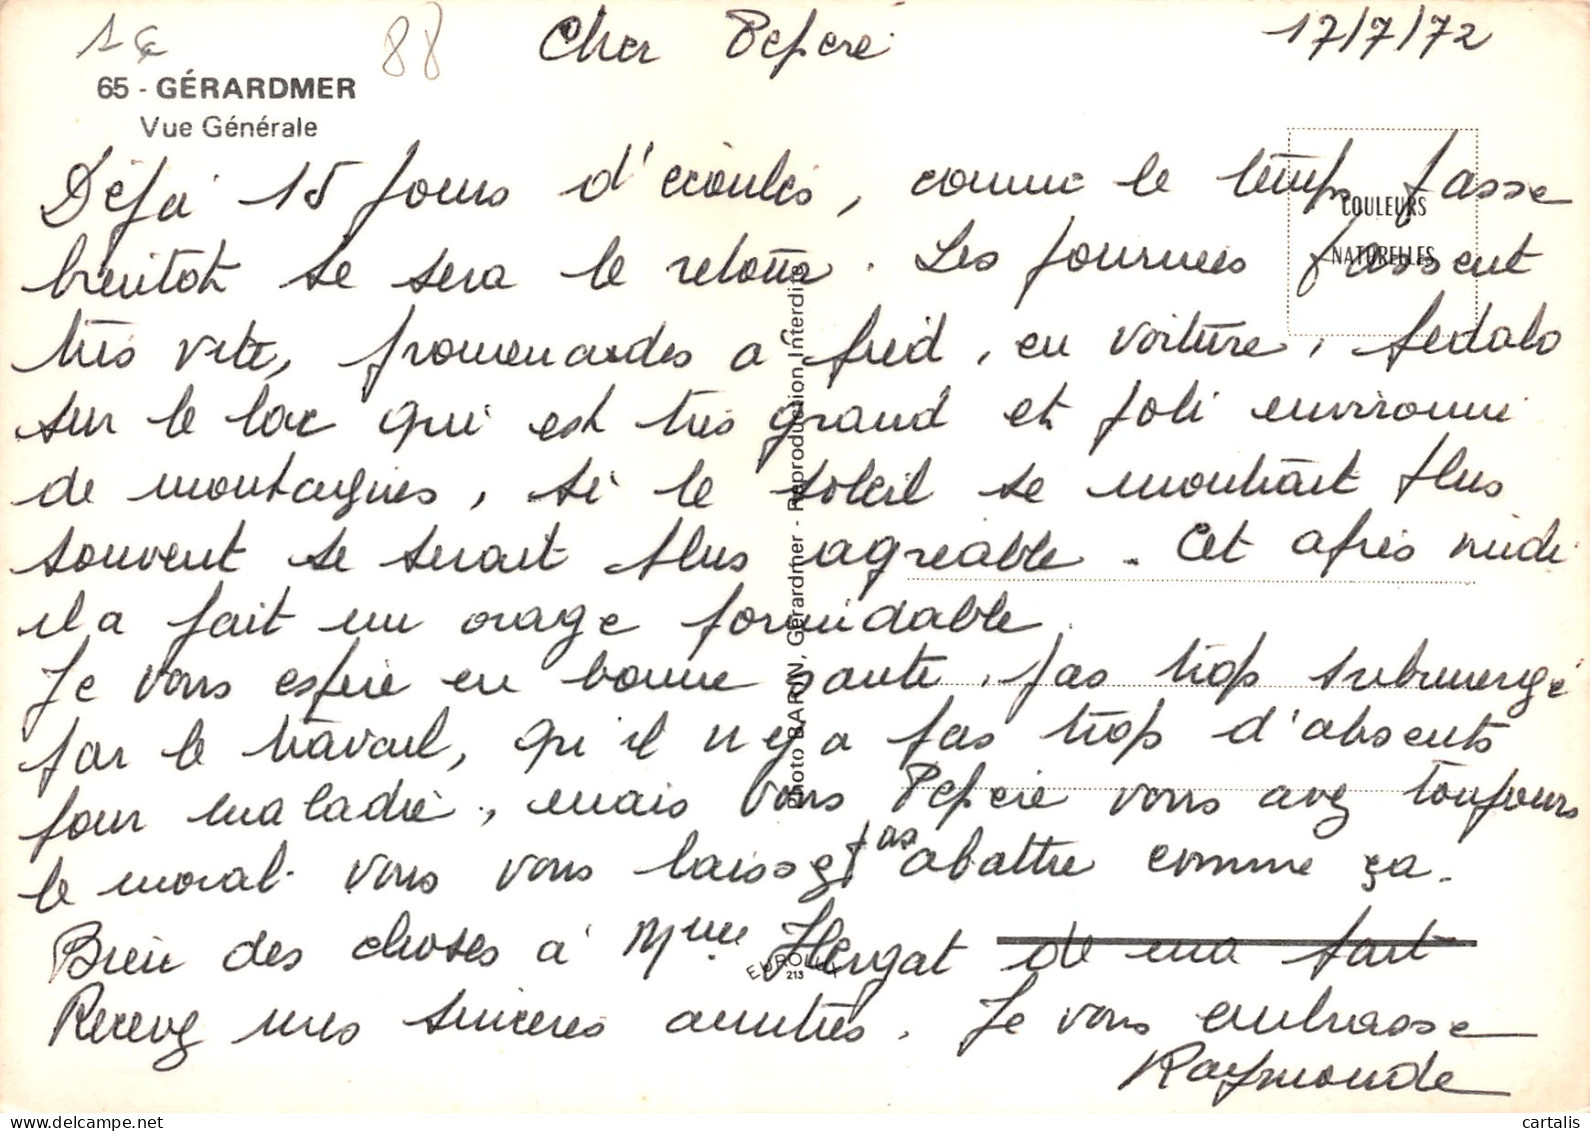 1 €
88
Cher Pepere
17/7/72
65 - GÉRARDMER
Vue Générale
COULEURS
NATURELLES
Déjà 15 jours d'écoulés, comme le temps passe
bientot se sera le retour. Les journees passent
très vite, promenades a pied, en voiture, pedalo
sur le lac qui est très grand et joli environné
de montagnes, si le soleil se montrait plus
souvent se serait plus agreable. Cet après midi
il a fait un orage formidable.
Je vous espère en bonne sante, pas trop submergé
par le travail, qu'il n'y a pas trop d'absents
pour maladie, mais vous Pepere vous avez toujours
le moral. vous vous laissez pas abattre comme ça.
Bien des choses à Mme Hergat de ma part
Recevez mes sinceres amitiés. Je vous embrasse
Raymonde
Photo BARIN, Gérardmer - Reproduction Interdite
EUROLUX
213
cartalis
delcampe.net